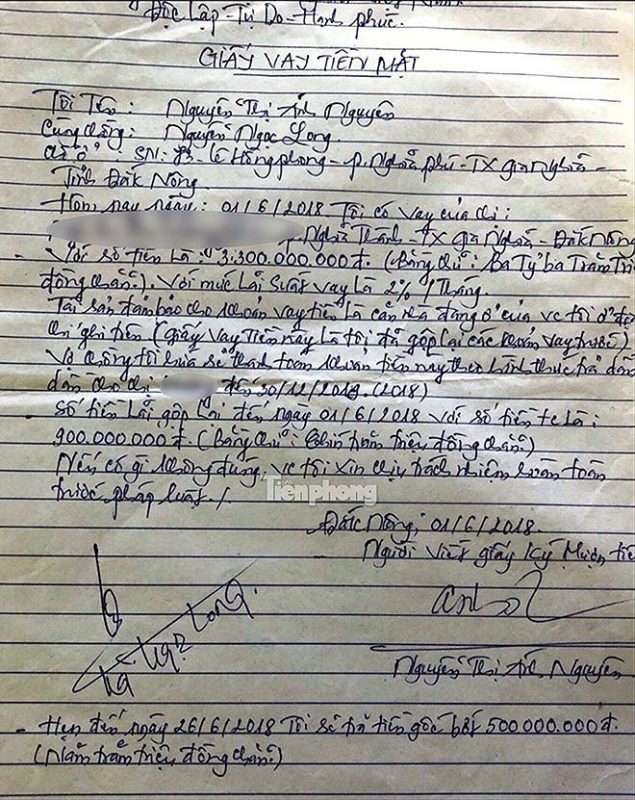 Độc Lập - Tự Do - Hạnh phúc.
GIẤY VAY TIỀN MẶT
Tôi Tên: Nguyễn Thị Ánh Nguyên
Cùng chồng: Nguyễn Ngọc Long
chỗ ở: SN: - Lê Hồng Phong - P. Nghĩa phú - TX Gia Nghĩa -
Tỉnh Đăk Nông.
Hôm nay ngày: 01/6/2018 Tôi có vay của chị:
P. Nghĩa Thành - TX Gia Nghĩa - Đăk Nông
- Với số tiền là: 3.300.000.000đ. (Bằng chữ: Ba Tỷ ba Trăm Tri
đồng chẵn). Với mức lãi suất vay là 2%/Tháng.
Tài sản đảm bảo cho khoản vay tiền là căn nhà đang ở của vc tôi ở
chỉ ghi trên (Giấy vay Tiền này là tôi đã gộp lại các khoản vay trước)
Vợ chồng tôi hứa sẽ thanh toán khoản tiền này theo hình thức trả dần
dần cho chị đến 30/11/2018. (2018)
- Số tiền lãi gộp lại đến ngày 01/6/2018 với số tiền là:
900.000.000đ. (Bằng chữ: Chín trăm triệu đồng chẵn.)
Nếu có gì không đúng. vc tôi xin chịu trách nhiệm hoàn toàn
trước pháp luật./.
Tiềnphong
Đăk Nông, 01/6/2018.
Người viết giấy ký Mượn tiề
Long.
Nguyễn Thị Ánh Nguyên
- Hẹn đến ngày 26/6/2018 Tôi sẽ trả tiền gốc bớt 500.000.000đ.
(Năm trăm triệu đồng chẵn.)